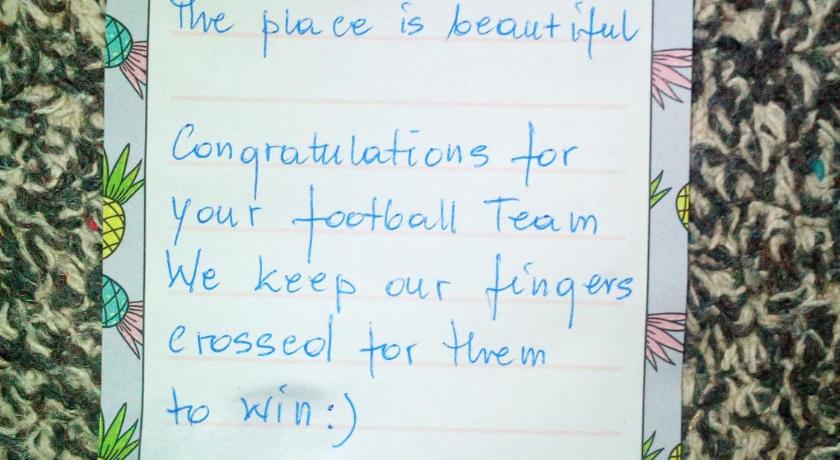 The place is beautiful
Congratulations for
your football Team
We keep our fingers
crossed for them
to win:)